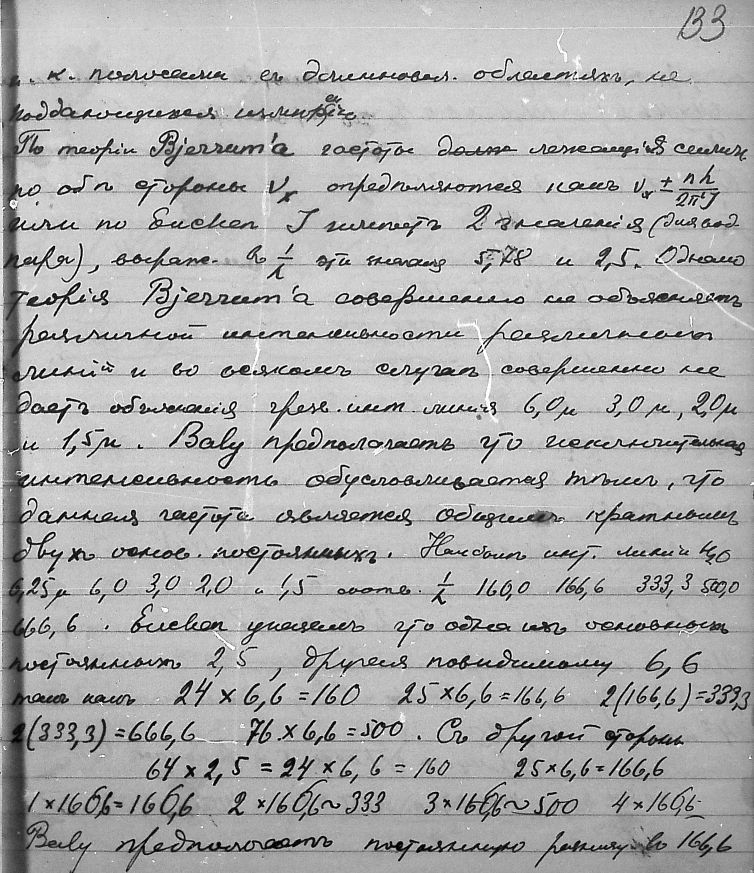 133
к. полосами съ длинновол. областяхъ, не
поддающихся
По теоріи Bjerrum'а частоты лежащія симметр
по обѣ стороны νₓ опредѣляются какъ νₓ ± nh/2π²J
или по Eucken J имѣетъ 2 значенія (для вод.
пара), выраж. въ 1/λ эти значенія 5,78 и 2,5. Однако
теорія Bjerrum'а совершенно не объясняетъ
различной интенсивности различныхъ
линій и во всякомъ случаѣ совершенно не
даетъ объясненія чрезв. инт. линія 6,0μ 3,0μ, 2,0μ
и 1,5μ. Baly предполагаетъ что исключительная
интенсивность обусловливается тѣмъ, что
данная частота является общимъ кратнымъ
двухъ основ. постоянныхъ. Наиболѣе инт. линіи H₂O
6,25μ 6,0 3,0 2,0 и 1,5 соотв. 1/λ 160,0 166,6 333,3 500,0
666,6. Eucken указалъ что одна изъ основныхъ
постоянныхъ 2,5, другая повидимому 6,6
такъ какъ 24 × 6,6 = 160 25 × 6,6 = 166,6 2(166,6) = 333,3
2(333,3) = 666,6 76 × 6,6 = 500. Съ другой стороны
64 × 2,5 = 24 × 6,6 = 160 25 × 6,6 = 166,6
1 × 166,6 = 166,6 2 × 166,6 ~ 333 3 × 166,6 ~ 500 4 × 166,6
Baly предполагаетъ постоянную разницу въ 166,6